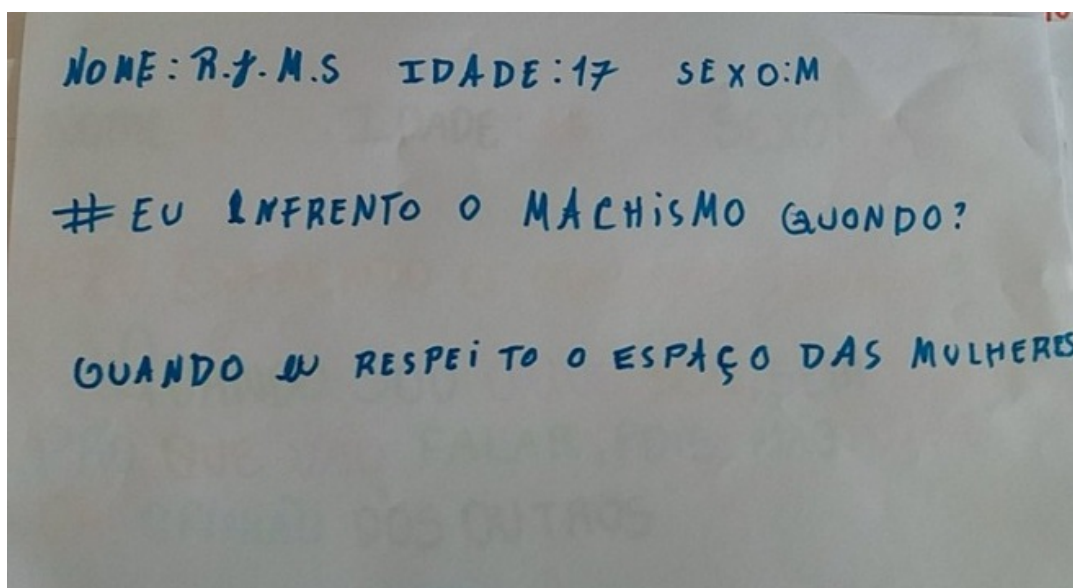 NOME: R.J.M.S IDADE: 17 SEXO: M
# EU INFRENTO O MACHISMO QUONDO?
QUANDO EU RESPEITO O ESPAÇO DAS MULHERES